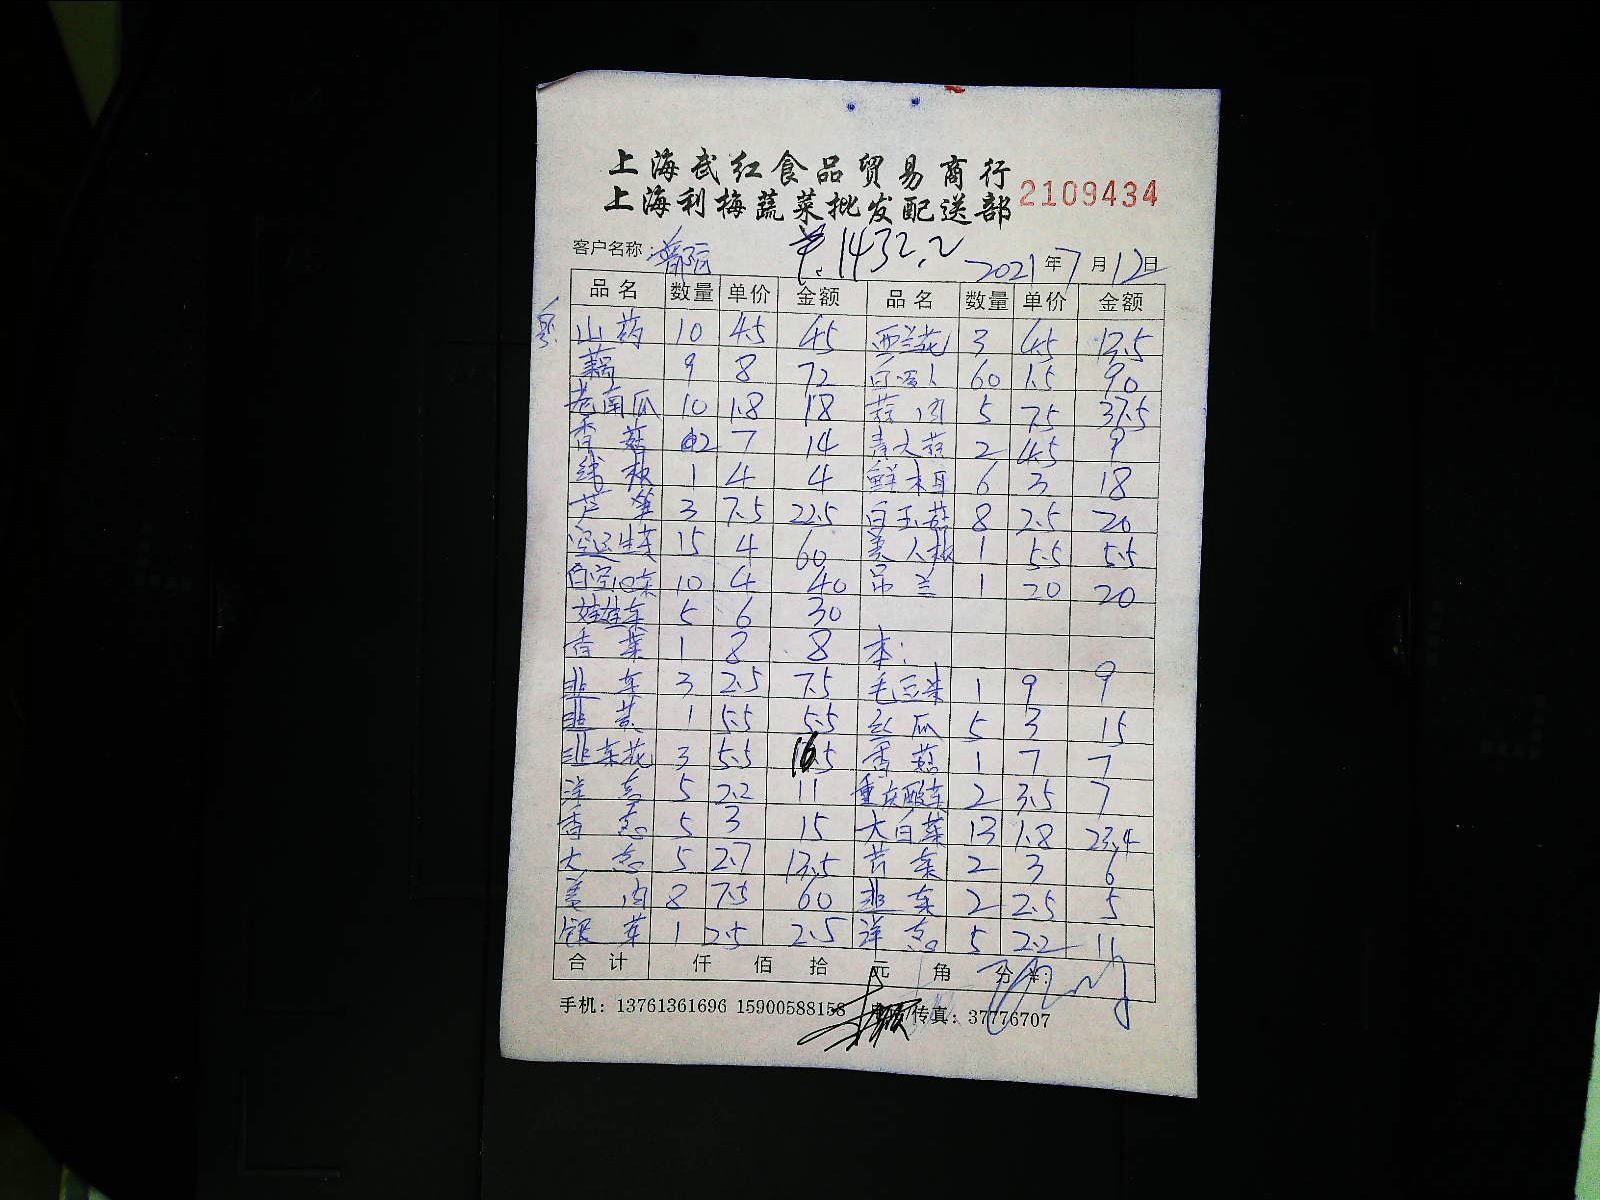 上海武红食品贸易商行
上海利梅蔬菜批发配送部
2109434
客户名称: ¥.1432.2 2021年7月12日
品名 数量 单价 金额 品名 数量 单价 金额
山药 10 4.5 45 西兰花 3 4.5 13.5
藕 9 8 72 60 1.5 90
老南瓜 10 1.8 18 蒜肉 5 7.5 37.5
香菇 2 7 14 青大蒜 2 4.5 9
线椒 1 4 4 鲜木耳 6 3 18
芦笋 3 7.5 22.5 白玉菇 8 2.5 20
空运生菜 15 4 60 美人椒 1 5.5 5.5
10 4 40 吊兰 1 20 20
娃娃菜 5 6 30
香菜 1 8 8 本:
韭菜 3 2.5 7.5 毛豆米 1 9 9
韭黄 1 5.5 5.5 丝瓜 5 3 15
韭菜花 3 5.5 16.5 香菇 1 7 7
洋葱 5 2.2 11 重庆酸菜 2 3.5 7
香葱 5 3 15 大白菜 13 1.8 23.4
大葱 5 2.7 13.5 芹菜 2 3 6
姜肉 8 7.5 60 韭菜 2 2.5 5
银芽 1 2.5 2.5 洋葱 5 2.2 11
合计 仟 佰 拾 元 角 分 ¥:
手机: 13761361696 15900588158 传真: 37776707